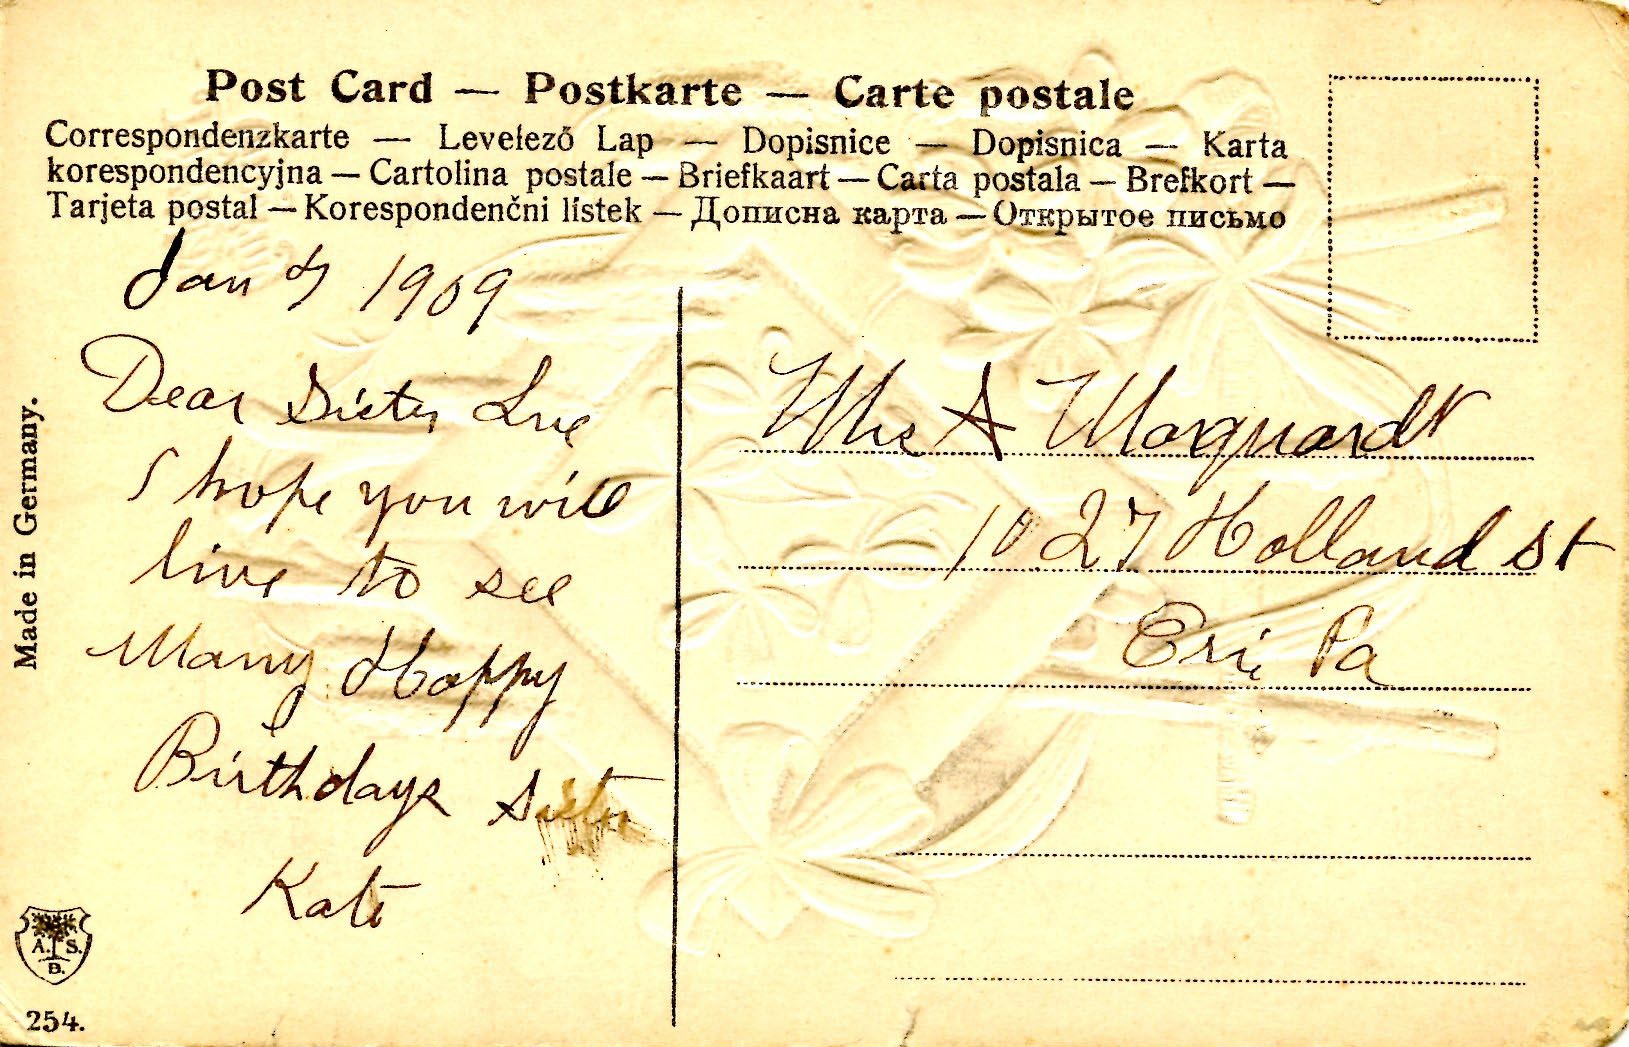 Post Card — Postkarte — Carte postale
Correspondenzkarte — Levelező Lap — Dopisnice — Dopisnica — Karta
korespondencyjna — Cartolina postale — Briefkaart — Carta postala — Brefkort —
Tarjeta postal — Korespondenčni listek — Дописна карта — Открытое письмо
Jan 1909
Dear Sister
I hope you will
live to see
Many Happy
Birthdays Sister
Kate
Mrs A Marquardt
1027 Holland St
Erie Pa
Made in Germany.
A. S.
B.
254.